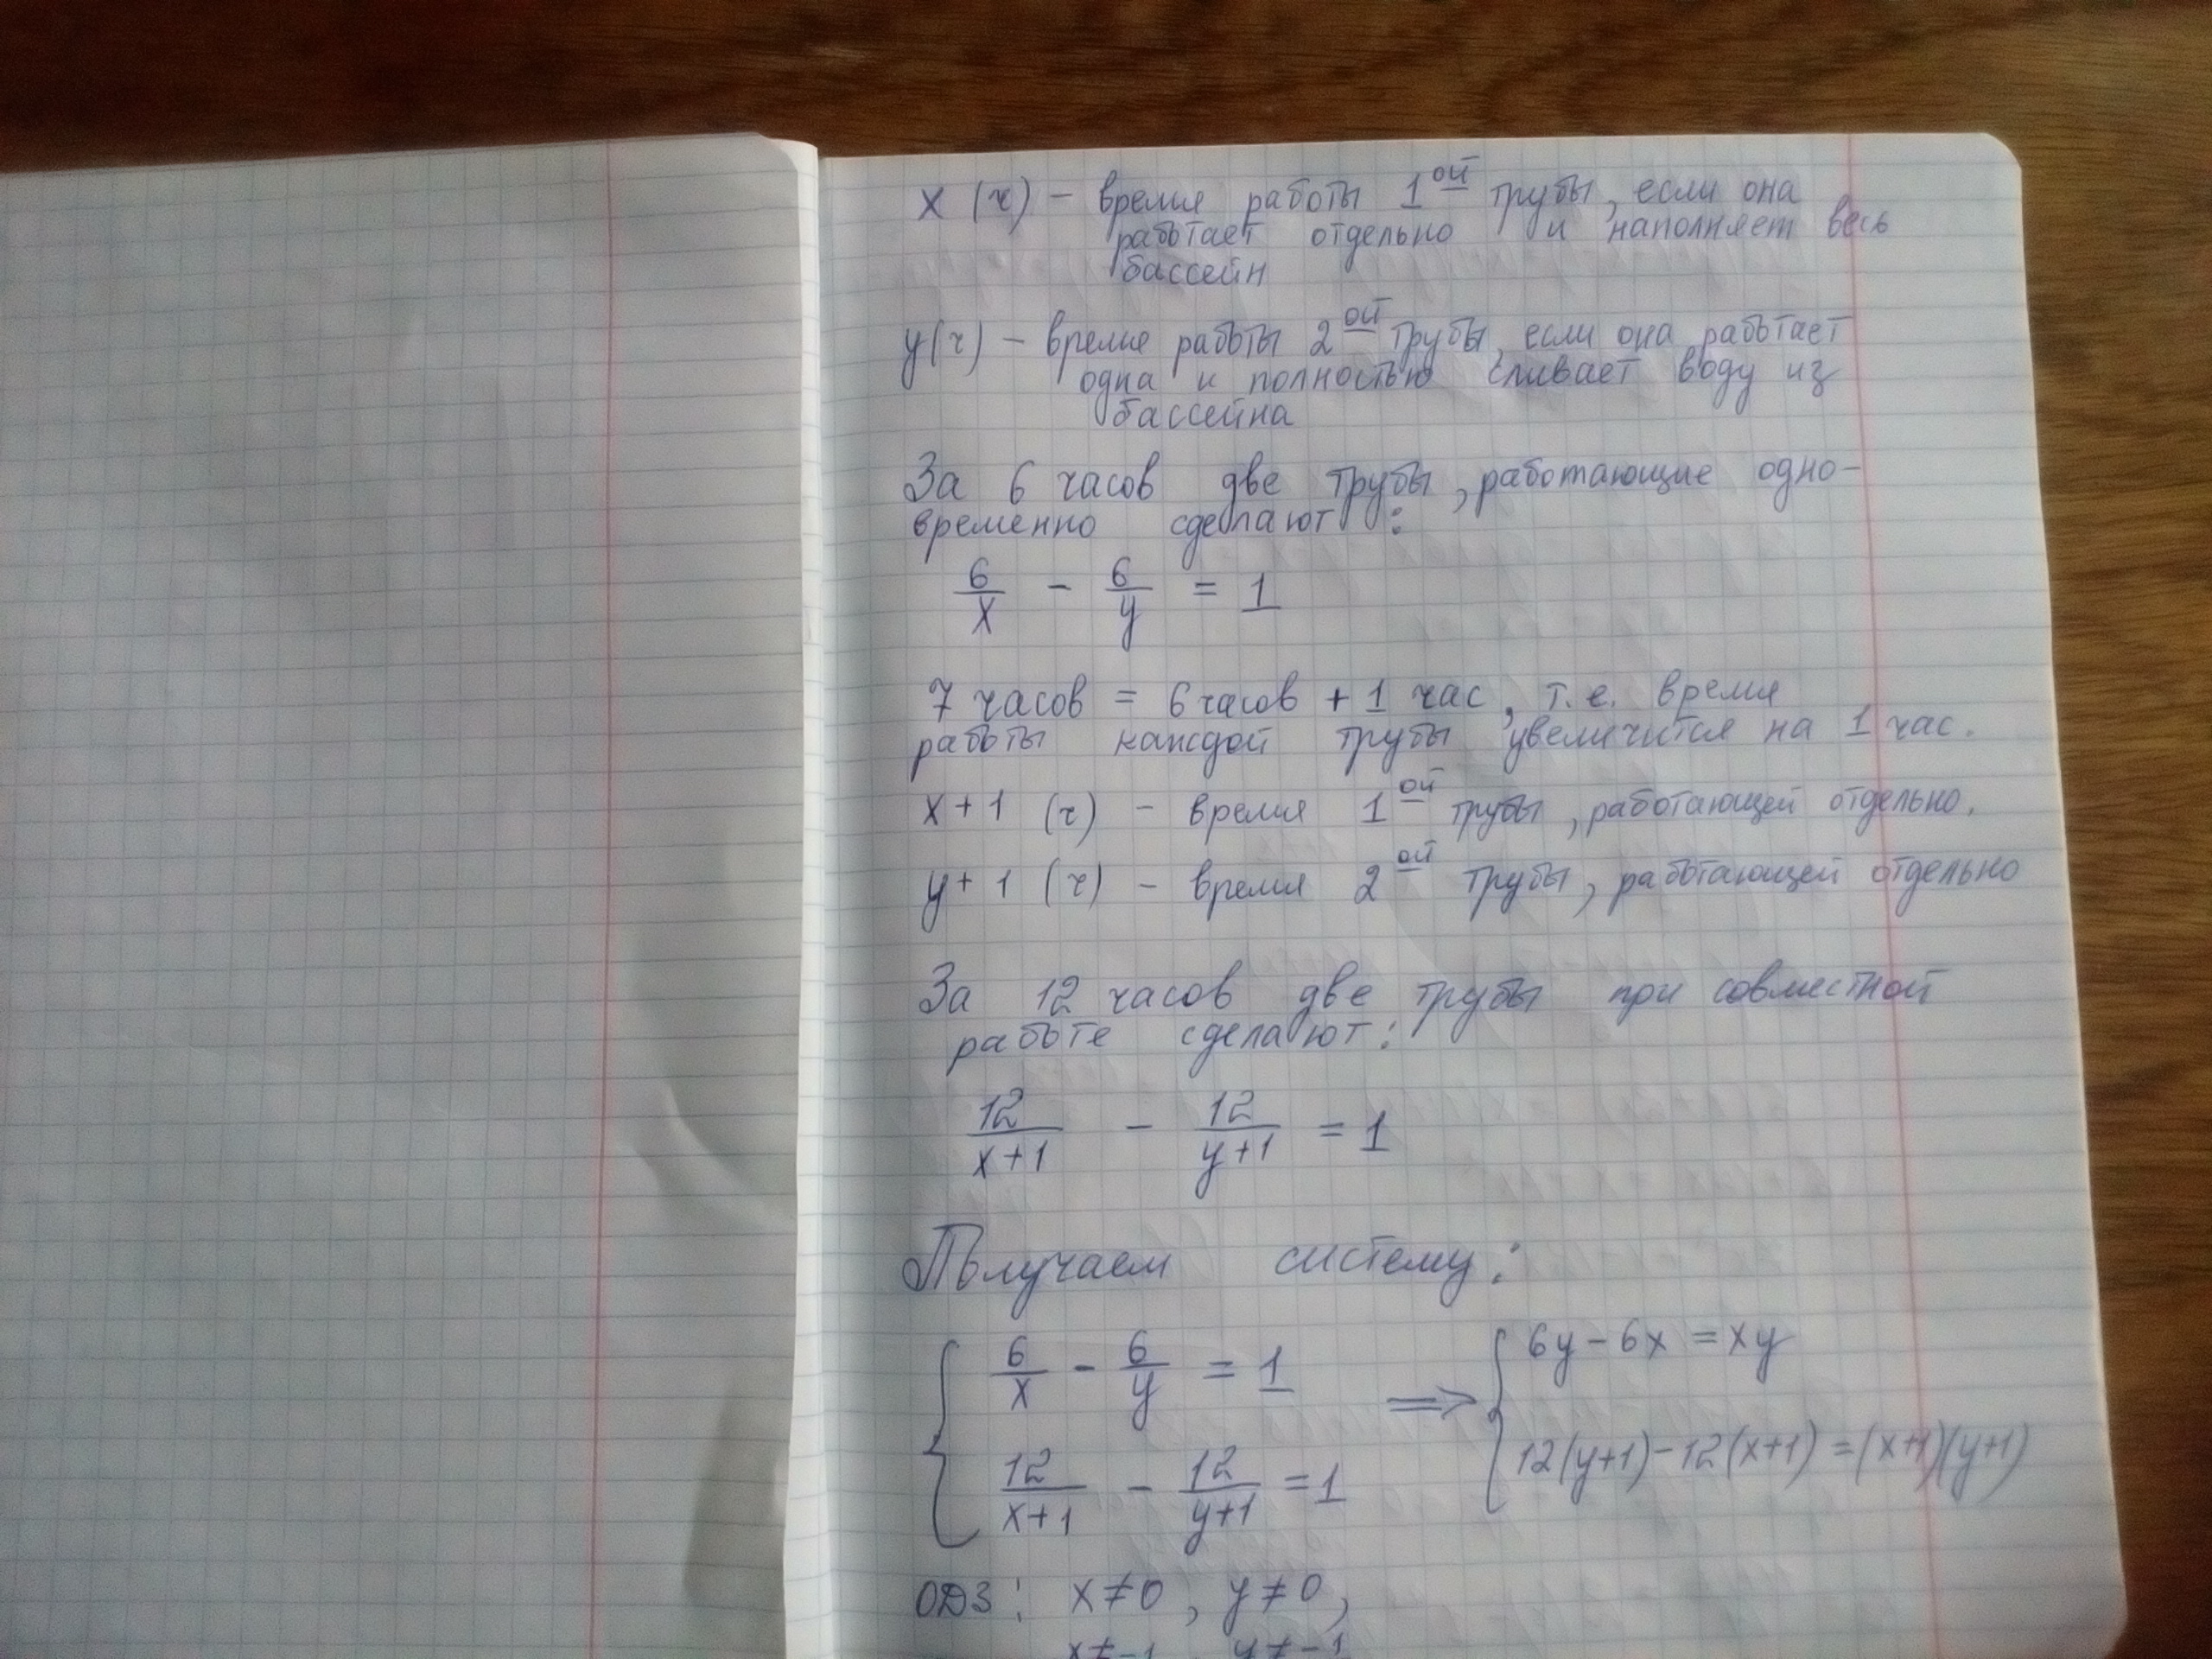 x (ч) – время работы 1ой трубы, если она
работает отдельно и наполняет весь
бассейн
y(ч) – время работы 2ой трубы, если она работает
одна и полностью сливает воду из
бассейна
За 6 часов две трубы, работающие одно-
временно сделают :
6/x - 6/y = 1
7 часов = 6 часов + 1 час, т.е. время
работы каждой трубы увеличится на 1 час.
x+1 (ч) – время 1ой трубы, работающей отдельно.
y+1 (ч) – время 2ой трубы, работающей отдельно
За 12 часов две трубы при совместной
работе сделают:
12/(x+1) - 12/(y+1) = 1
Получаем систему:
{ 6/x - 6/y = 1 ⟹ { 6y - 6x = xy
12/(x+1) - 12/(y+1) = 1 12(y+1) - 12(x+1) = (x+1)(y+1)
ОДЗ: x≠0, y≠0,
x≠-1 y≠-1